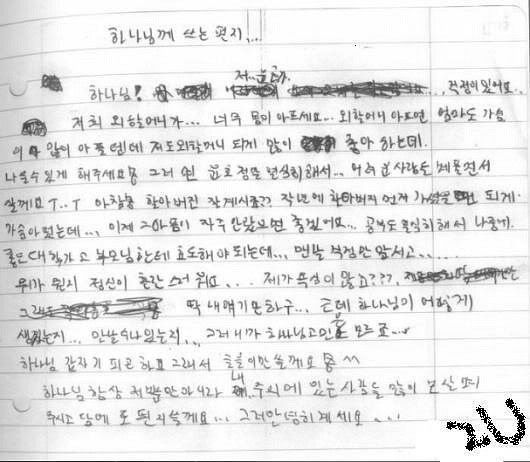 하나님께 쓰는 편지...
저.. 윤호가
하나님! 걱정이 있어요..
저희 외할머니가... 너무 몸이 아프세요.. 외할머니 아프면 엄마도 가슴
이 많이 아플텐데 저도 외할머니 되게 많이 좋아 하는데.
나을수 있게 해주세요 그러면 윤호 정말 열심히 해서.. 어려운 사람들 되면서
살께요 T..T 아참 할아버진 잘계시죠?? 작년에 할아버지 먼저 되게
가슴아팠는데..., 이제 그 아픔이 자주 안왔으면 좋겠어요... 공부도 열심히 해서 나중에.
좋은 대학가고 부모님한테 효도해야 되는데.., 맨날 걱정만 앞서고.....
뭐가 뭔지 정신이 혼란스러워요.... 제가 욕심이 많죠???,
딱 내얘기만 하구... 근데 하나님이 어떻게
생겼는지... 안할수나 있는지... 그러니까 하나님 고민은 모르죠...
하나님 갑자기 피곤하고 그래서 그만 쓸께요 ^^
하나님 항상 저 뿐만아니라 내 주위에 있는 사람들 많이 보살펴
주시고 담에 또 편지쓸께요... 그럼 안녕히계세요...